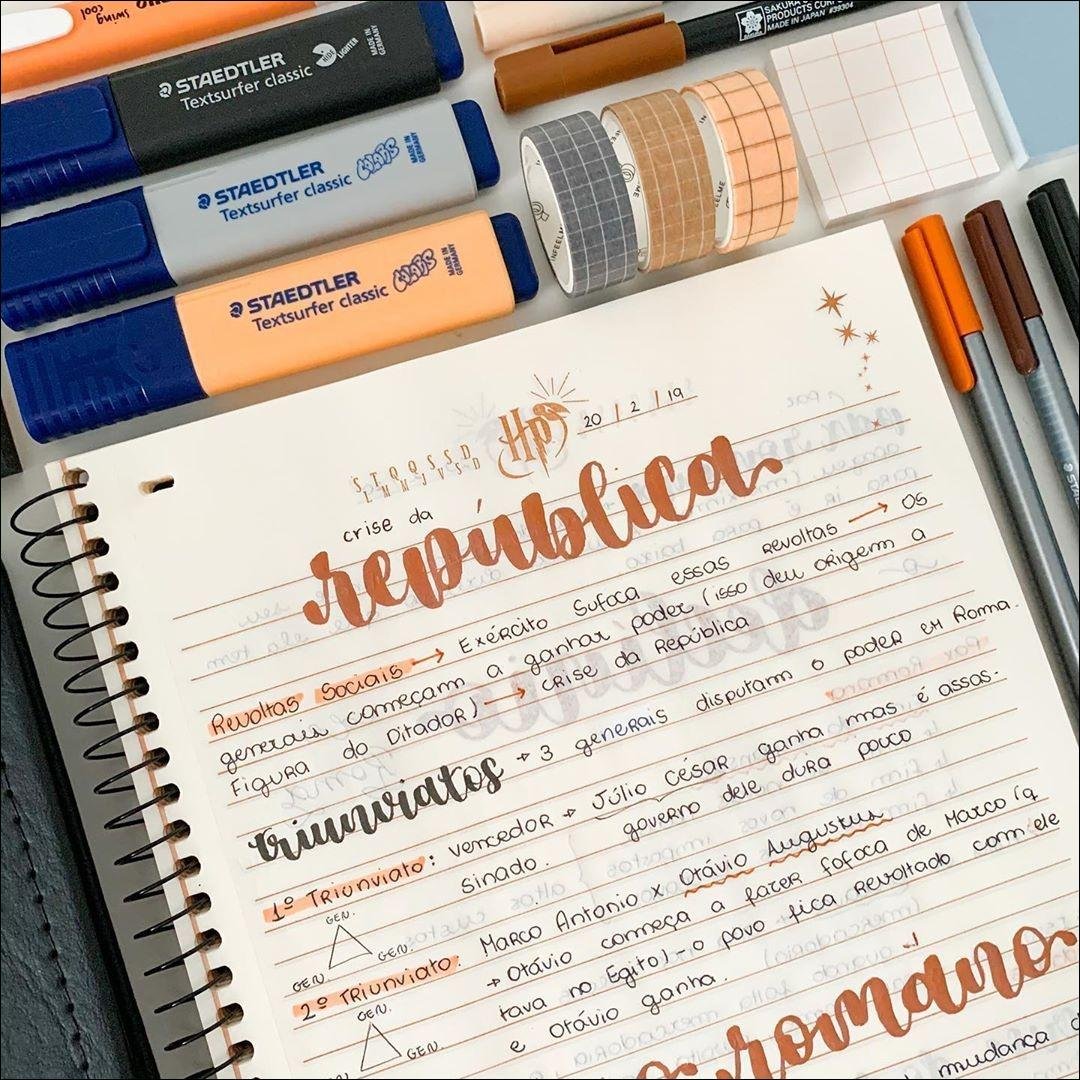 swing
cool
STAEDTLER
Textsurfer classic
LIGHTER
MADE IN
GERMANY
STAEDTLER
Textsurfer classic
MADE IN
GERMANY
STAEDTLER
Textsurfer classic
MADE IN
GERMANY
SAKURA
PRODUCTS CORP
MADE IN JAPAN #39304
INFEELME
S T Q Q S S D
L M M J V S D
HP
20 / 2 / 19
crise da
república
Revoltas Sociais → Exército Sufoca essas revoltas → os
generais começam a ganhar poder (isso deu origem a
figura do Ditador) → crise da República
triunviatos → 3 generais disputam o poder em Roma.
1º Triunviato: vencedor → Júlio César ganha mas é assas-
sinado.
governo dele dura pouco
GEN.
GEN.
GEN.
2º Triunviato: Marco Antonio x Otávio Augustus
→ Otávio começa a fazer fofoca de Marco (q
tava no Egito) → o povo fica revoltado com ele
e Otávio ganha.
GEN.
GEN.
romano
mudança